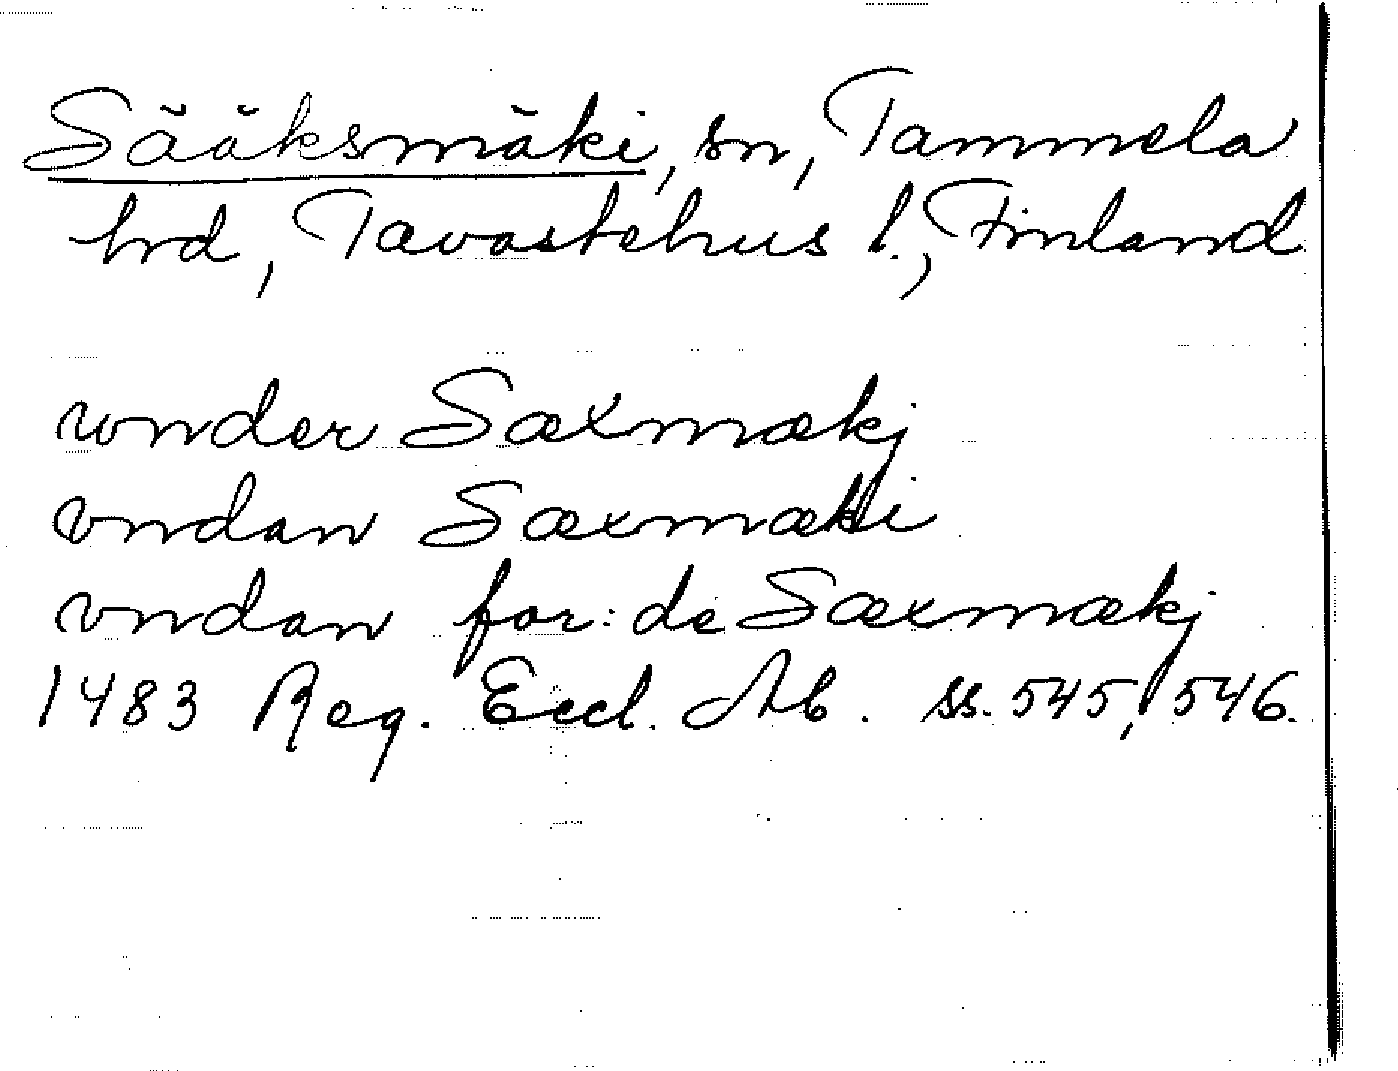 Sääksmäki, sn, Tammela
hrd, Tavastehus l., Finland
vnder Sæxmækj
vndan Sæxmæki
vndan for: de Sæxmækj
1483 Reg. Eccl. Ab. ss. 545, 546.